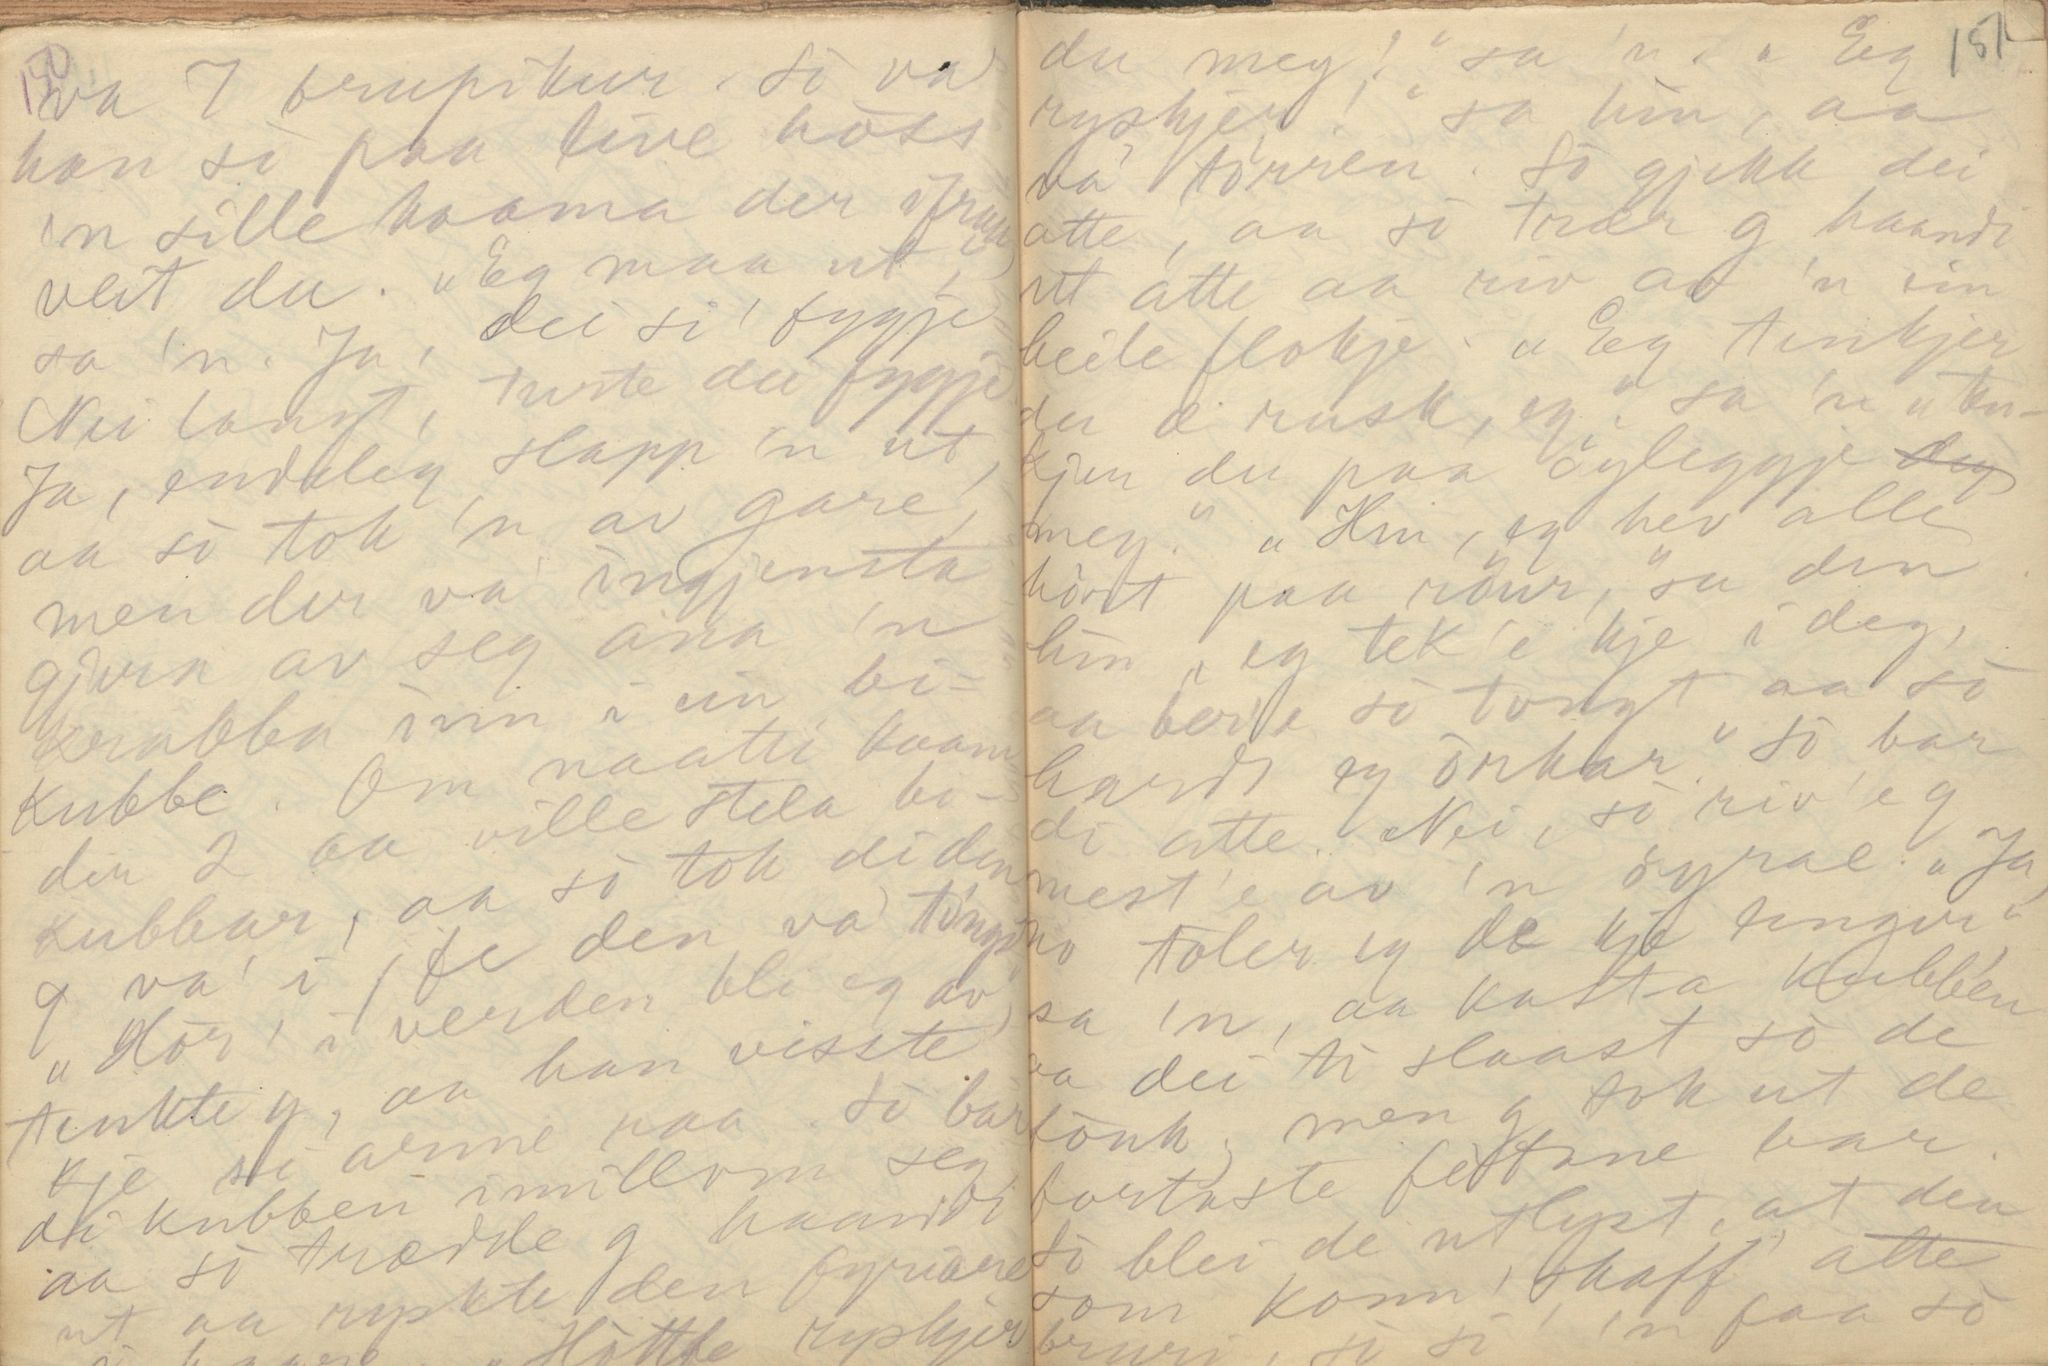 150
va 7 brupikur. Sò va
han sò paa live hòss
'n sille kaama der ifraa
veit du. „Eg maa ut,“
sa 'n. Ja, dei si' fygje
Nei langt, turte dei fygje
Ja, endeleg slapp 'n ut,
aa sò tok 'n av gare,
men der va' ingjensta
gjera av seg ana 'n
krabba inn i ein bi-
kubbe. Om naatti kaam
der 2 aa ville stela bi-
kubbar, aa sò tok di den
g va' i, fe den va tyngst
„Hòr' i verden bli eg av“
tenkte g, aa han visste
kje si arme raa. Sò bar
di kubben imillom seg
aa sò trædde g haandi
ut aa ryskte den fyriare
i haare. „Hòttfe ryskjer
151
du meg!“ sa 'n. „Eg
ryskjer!“ sa hin, aa
va' tòrren. Sò gjekk dei
atte, aa sò trær g haandi
ut atte aa riv av 'n ein
heile flokje. „Eg tenkjer
du æ rusk, eg“ sa 'n „ten-
kjer du paa òyleggje
meg.“ „Hin, eg hev alle
hòrt paa ròur,“ sa den
hin, „eg tek 'e kje i deg,
aa ber'e sò tongt aa sò
hardt eg òrkar.“ Sò bar
di atte. Nei, sò riv' eg
mest 'e av 'n òyrae. „Ja,
no toler eg de kje lenger“
sa 'n, aa kasta kubben
aa dei ti slaast sò de
fònk, men g tok ut de
fortaste fettane bar.
Sò blei de utlyst, at den
som konn' skaff' atte
bruri, sò si' 'n faa sò